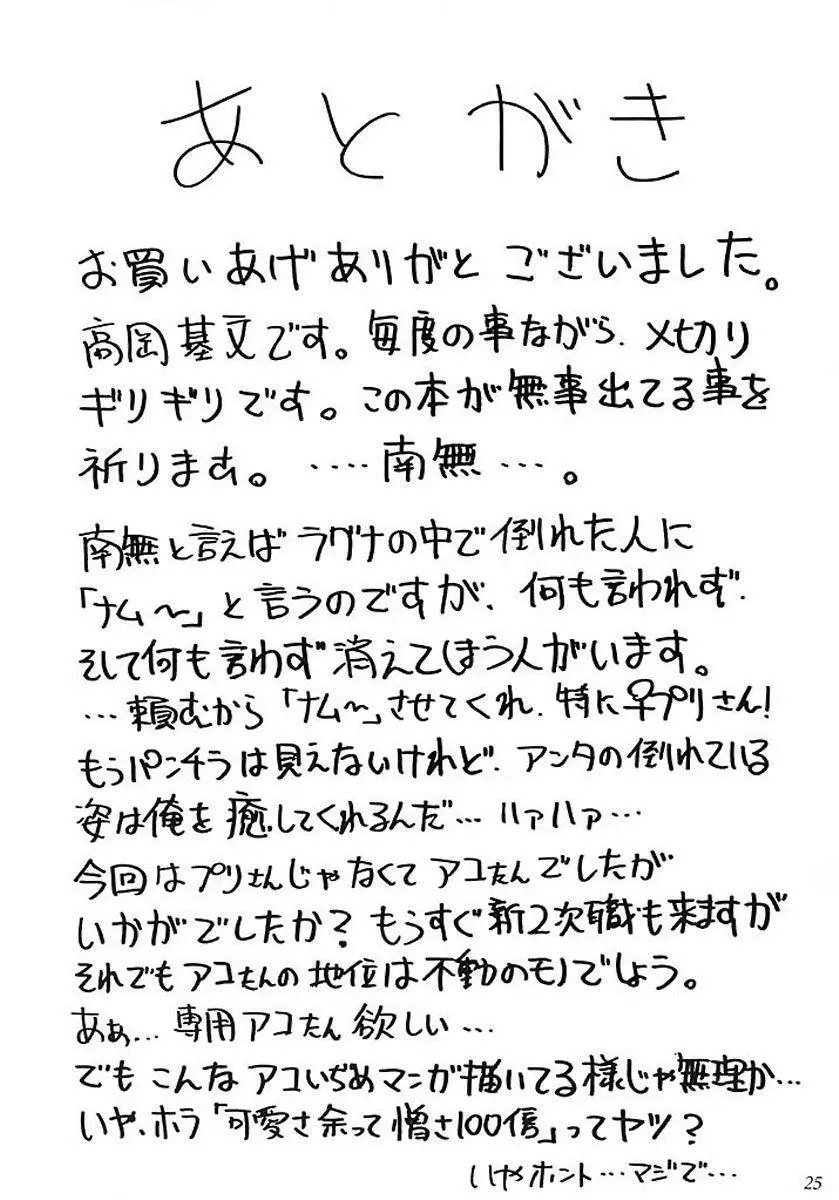 あとがき
お買いあげありがとございました。
高岡基文です。毎度の事ながら、〆切り
ギリギリです。この本が無事出てる事を
祈ります。‥‥南無‥‥。
南無と言えばラグナの中で倒れた人に
「ナム〜」と言うのですが、何も言われず、
そして何も言わず消えてしまう人がいます。
…頼むから「ナム〜」させてくれ、特に♀プリさん!
もうパンチラは見えないけれど、アンタの倒れている
姿は俺を癒してくれるんだ…ハァハァ…
今回はプリさんじゃなくてアコたんでしたが
いかがでしたか?もうすぐ新2次職も来ますが
それでもアコたんの地位は不動のモノでしょう。
あぁ…専用アコたん欲しい…
でもこんなアコいぢめマンガ描いてる様じゃ無理か…
いや、ホラ「可愛さ余って憎さ100倍」ってヤツ?
いやホント…マジで…
25